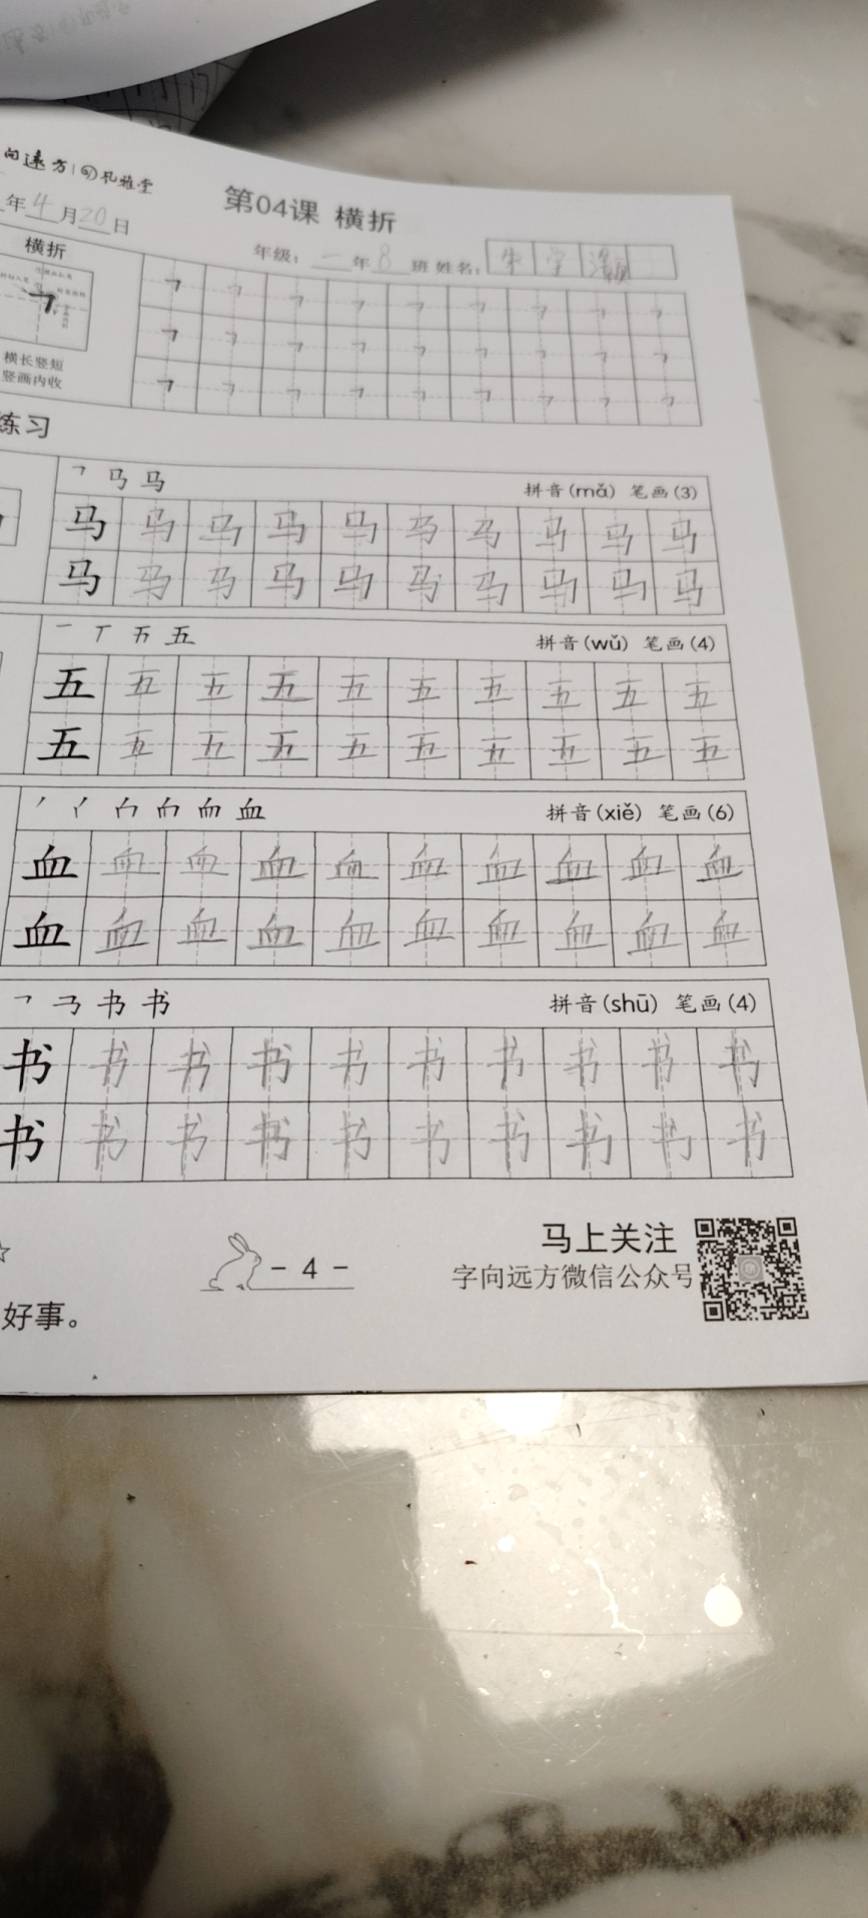 向远方 | 习孔雅堂
年4月20日
第04课 横折
年级：一年8班 姓名：朱学
横折
横长竖短
竖画内收
练习
㇕ 马 马
拼音(mǎ) 笔画(3)
马 马 马 马 马 马 马 马 马 马
马 马 马 马 马 马 马 马 马 马
一 丁 五 五
拼音(wǔ) 笔画(4)
五 五 五 五 五 五 五 五 五 五
五 五 五 五 五 五 五 五 五 五
血
拼音(xiě) 笔画(6)
血 血 血 血 血 血 血 血 血 血
血 血 血 血 血 血 血 血 血 血
㇕ 书 书
拼音(shū) 笔画(4)
书 书 书 书 书 书 书 书 书 书
书 书 书 书 书 书 书 书 书 书
- 4 -
马上关注
字向远方微信公众号
好事。